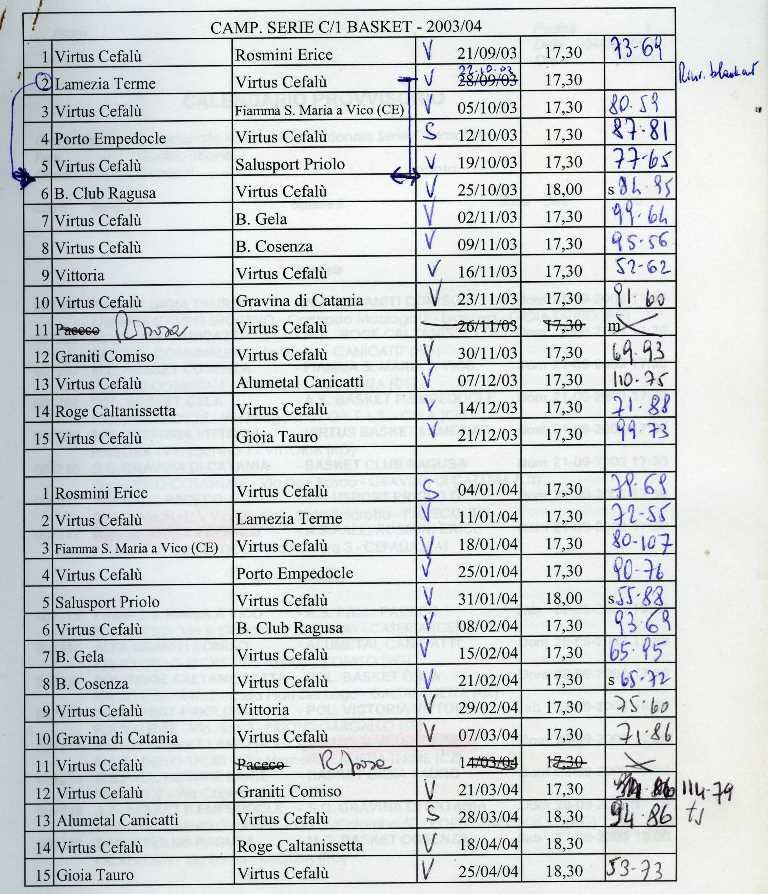 CAMP. SERIE C/1 BASKET - 2003/04
1 Virtus Cefalù Rosmini Erice V 21/09/03 17,30 73-69
22.10.03
2 Lamezia Terme Virtus Cefalù V 28/09/03 17,30
3 Virtus Cefalù Fiamma S. Maria a Vico (CE) V 05/10/03 17,30 80-59
4 Porto Empedocle Virtus Cefalù S 12/10/03 17,30 87-81
5 Virtus Cefalù Salusport Priolo V 19/10/03 17,30 77-65
6 B. Club Ragusa Virtus Cefalù V 25/10/03 18,00 s 84-95
7 Virtus Cefalù B. Gela V 02/11/03 17,30 99-64
8 Virtus Cefalù B. Cosenza V 09/11/03 17,30 95-56
9 Vittoria Virtus Cefalù V 16/11/03 17,30 52-62
10 Virtus Cefalù Gravina di Catania V 23/11/03 17,30 91-60
11 Paceco Riposa Virtus Cefalù 26/11/03 17,30 m
12 Graniti Comiso Virtus Cefalù V 30/11/03 17,30 69-93
13 Virtus Cefalù Alumetal Canicattì V 07/12/03 17,30 110-75
14 Roge Caltanissetta Virtus Cefalù V 14/12/03 17,30 71-88
15 Virtus Cefalù Gioia Tauro V 21/12/03 17,30 99-73
1 Rosmini Erice Virtus Cefalù S 04/01/04 17,30 79-69
2 Virtus Cefalù Lamezia Terme V 11/01/04 17,30 72-55
3 Fiamma S. Maria a Vico (CE) Virtus Cefalù V 18/01/04 17,30 80-107
4 Virtus Cefalù Porto Empedocle V 25/01/04 17,30 90-76
5 Salusport Priolo Virtus Cefalù V 31/01/04 18,00 s 55-88
6 Virtus Cefalù B. Club Ragusa V 08/02/04 17,30 93-69
7 B. Gela Virtus Cefalù V 15/02/04 17,30 65-95
8 B. Cosenza Virtus Cefalù V 21/02/04 17,30 s 65-72
9 Virtus Cefalù Vittoria V 29/02/04 17,30 75-60
10 Gravina di Catania Virtus Cefalù V 07/03/04 17,30 71-86
11 Virtus Cefalù Paceco Riposa 14/03/04 17,30
12 Virtus Cefalù Graniti Comiso V 21/03/04 17,30 114-79
13 Alumetal Canicattì Virtus Cefalù S 28/03/04 18,30 94-86 ts
14 Virtus Cefalù Roge Caltanissetta V 18/04/04 18,30
15 Gioia Tauro Virtus Cefalù V 25/04/04 18,30 53-73